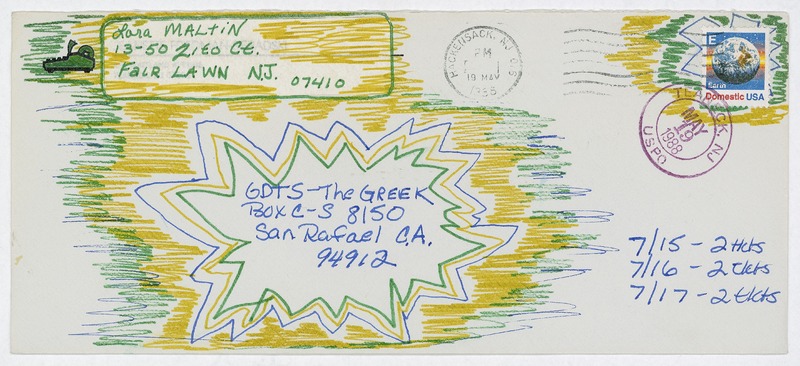 Lara MALTiN
13-50 Zito Ct.
FAIR LAWN N.J. 07410
HACKENSACK, NJ
PM
19 MAY
1988
E
Earth
Domestic USA
NJ
MAY
19
1988
USPO
GDTS-The GREEK
Box C-S 8150
San Rafael C.A.
94912
7/15-2 tkts
7/16-2 tkts
7/17-2 tkts